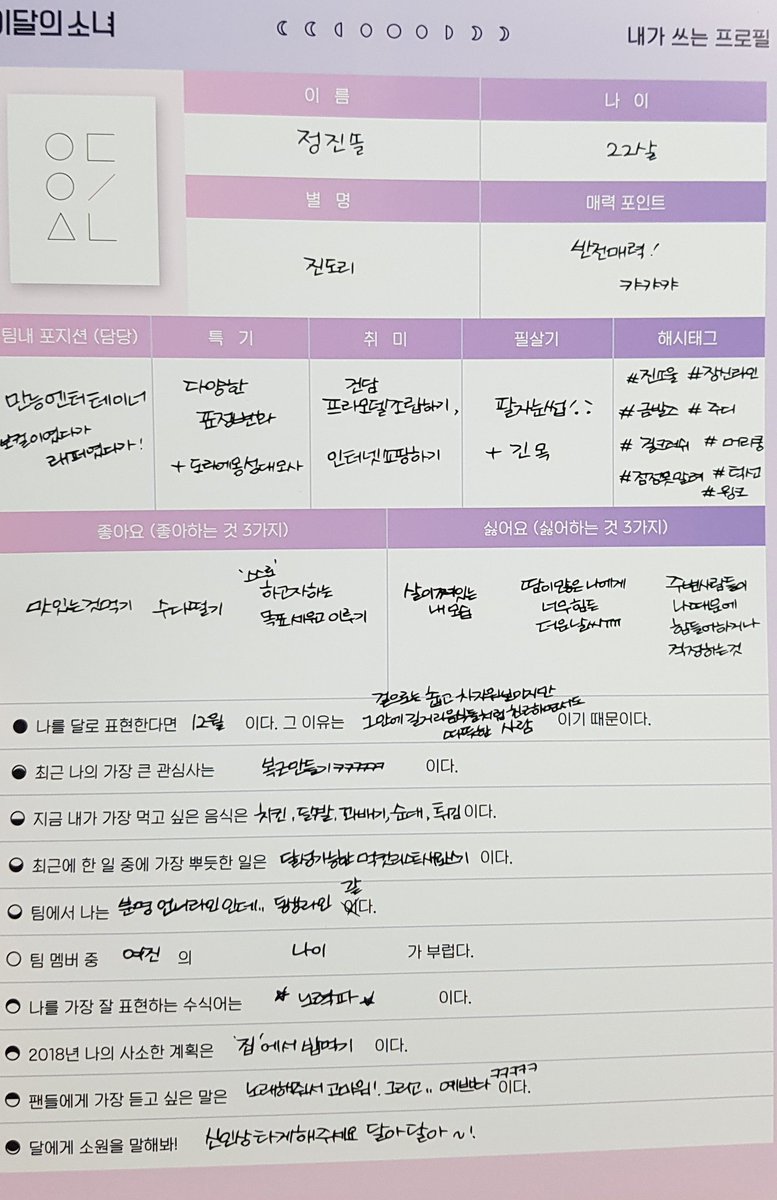 이달의 소녀
내가 쓰는 프로필
이 름
나 이
정진뜰
22살
별 명
매력 포인트
진도리
반전매력!
캬캬캬
팀내 포지션 (담당)
특 기
취 미
필살기
해시태그
만능엔터테이너
보컬이였다가
래퍼였다가!
다양한
표정변화
+ 도라에몽성대모사
건담
프라모델조립하기,
인터넷쇼핑하기
팔자눈썹
+ 긴 목
#진뜨울 #장신라인
#금발즈 #주디
#걸크러쉬 #머리쿵
#점점못말려 #턱선
#윙크
좋아요 (좋아하는 것 3가지)
싫어요 (싫어하는 것 3가지)
맛있는것먹기
수다떨기
'스스로'
하고자하는
목표세우고 이루기
살이쪄있는
내 모습
땀이많은 나에게
너무힘든
더운날씨ㅠㅠ
주변사람들이
나때문에
힘들어하거나
걱정하는것
나를 달로 표현한다면 12월 이다. 그 이유는 겉으로는 춥고 차가워보이지만
그안에 길거리음식들처럼 친근하면서도
따뜻한 사람 이기 때문이다.
최근 나의 가장 큰 관심사는 복근만들기ㅋㅋㅋㅋㅋ 이다.
지금 내가 가장 먹고 싶은 음식은 치킨, 닭발, 꽈배기, 순대, 튀김 이다.
최근에 한 일 중에 가장 뿌듯한 일은 달성가능한 버킷리스트새로쓰기 이다.
팀에서 나는 분명 언니라인인데.. 동생라인 같다.
팀 멤버 중 여진 의 나이 가 부럽다.
나를 가장 잘 표현하는 수식어는 ★ 노력파 ★ 이다.
2018년 나의 사소한 계획은 '집'에서 밥먹기 이다.
팬들에게 가장 듣고 싶은 말은 노래해줘서 고마워! 그리고.. 예쁘다 ㅋㅋㅋㅋ 이다.
달에게 소원을 말해봐! 신인상타게해주세요 달아달아~!